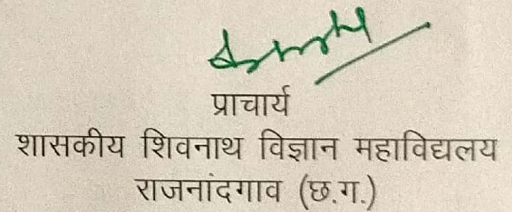 प्राचार्य
शासकीय शिवनाथ विज्ञान महाविद्यलय
राजनांदगाव (छ.ग.)